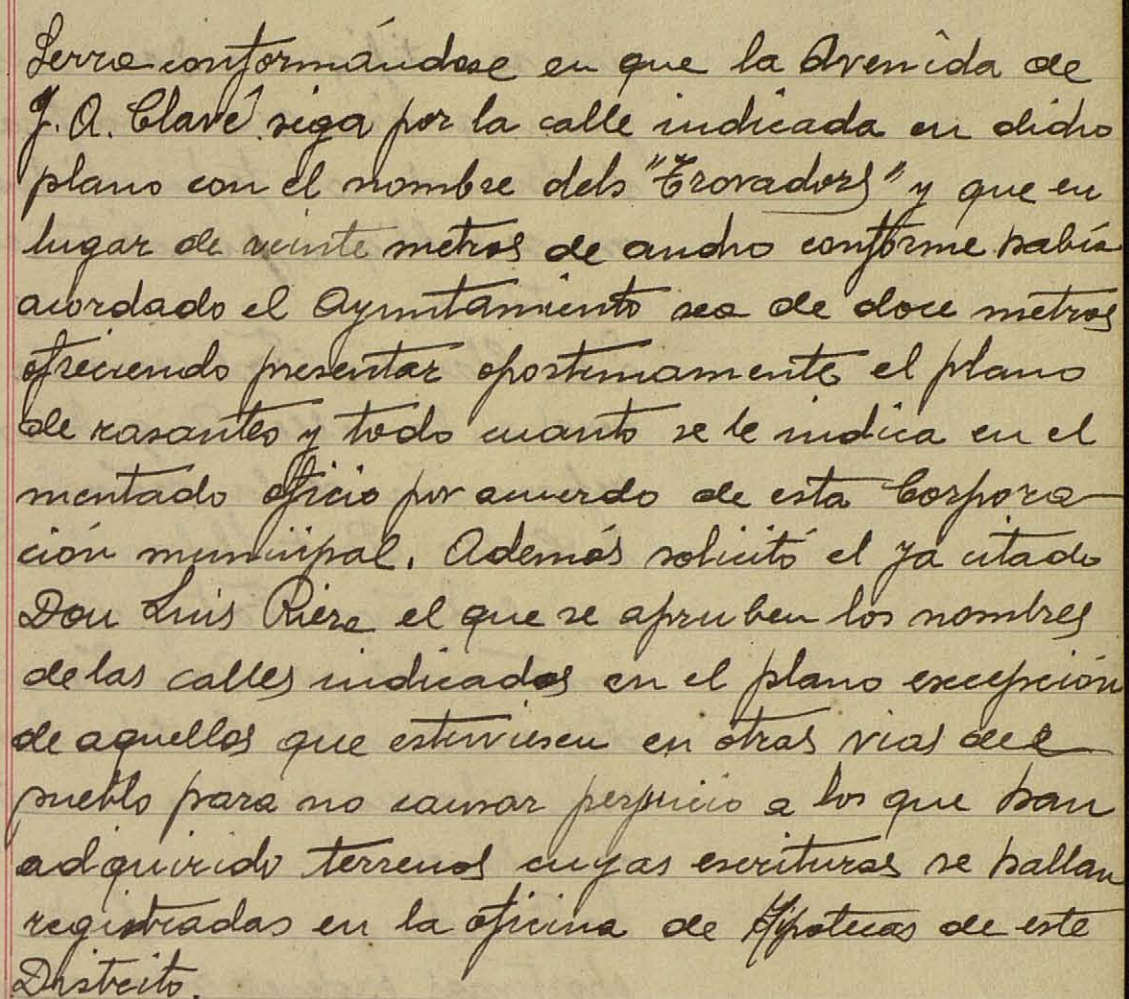 Serra conformándose en que la Avenida de
J. A. Clavé siga por la calle indicada en dicho
plano con el nombre dels "Trovadors" y que en
lugar de veinte metros de ancho conforme había
acordado el Ayuntamiento sea de doce metros
ofreciendo presentar oportunamente el plano
de rasantes y todo cuanto se le indica en el
mentado oficio por acuerdo de esta Corpora-
ción municipal. Además solicitó el ya citado
Don Luis Riera el que se aprueben los nombres
de las calles indicados en el plano excepción
de aquellos que estuviesen en otras vias del
pueblo para no causar perjuicio a los que han
adquirido terrenos cuyas escrituras se hallan
registradas en la oficina de Hipotecas de este
Distrito.